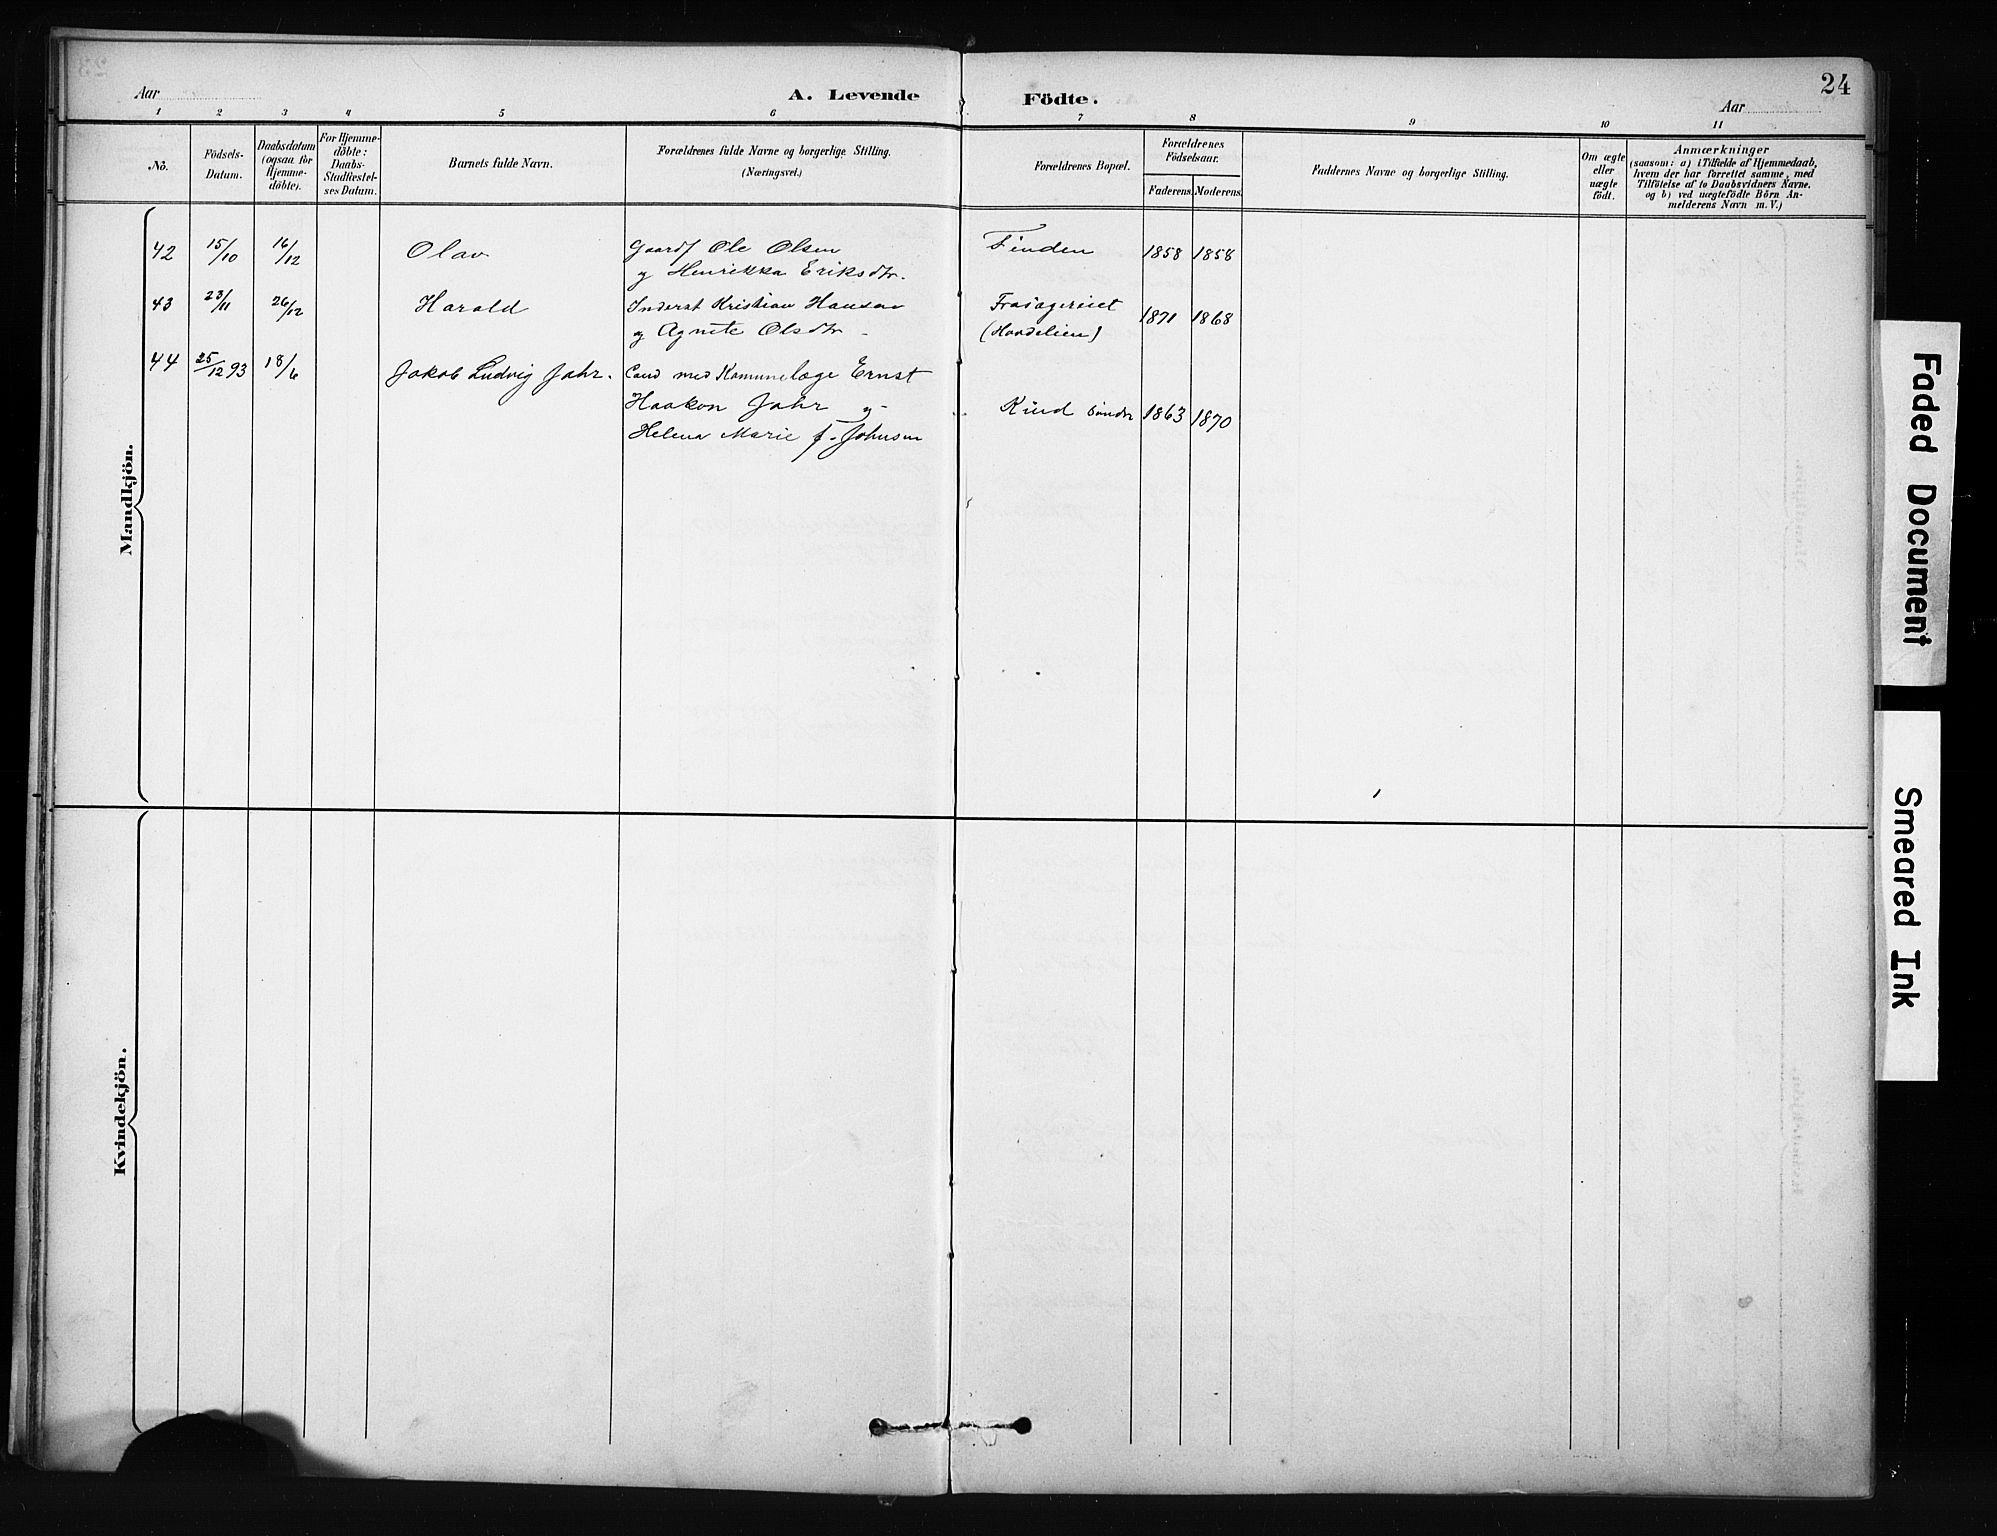 24
Aar
A. Levende Födte.
Aar
1 2 3 4 5 6 7 8 9 10 11
No.
Födsels-
Datum.
Daabsdatum
(ogsaa for
Hjemme-
döbte).
For Hjemme-
döbte:
Daabs-
Stadfæstel-
ses Datum.
Barnets fulde Navn.
Forældrenes fulde Navne og borgerlige Stilling.
(Næringsvei.)
Forældrenes Bopæl.
Forældrenes
Födselsaar.
Faderens. Moderens.
Faddernes Navne og borgerlige Stilling.
Om ægte
eller
uægte
födt.
Anmærkninger
(saasom: a) i Tilfælde af Hjemmedaab,
hvem der har forrettet samme, med
Tilföielse af to Daabsvidners Navne,
og b) ved uægtefödte Börn An-
melderens Navn m. V.)
Mandkjön.
42 15/10 16/12 Olav Gaardf Ole Olsen Finden 1858 1858
og Henrikka Eriksdtr.
43 23/11 26/12 Harald Inderst Kristian Hansen 1871 1868
og Agnete Olsdtr (Haadelien)
44 25/12 93 18/6 Jakob Ludvig Jahr. Cand med Kommunelæge Ernst
Haakon Jahr og Kind søndre 1863 1870
Helena Marie f. Johnsen
Kvindekjön.
Faded Document
Smeared Ink